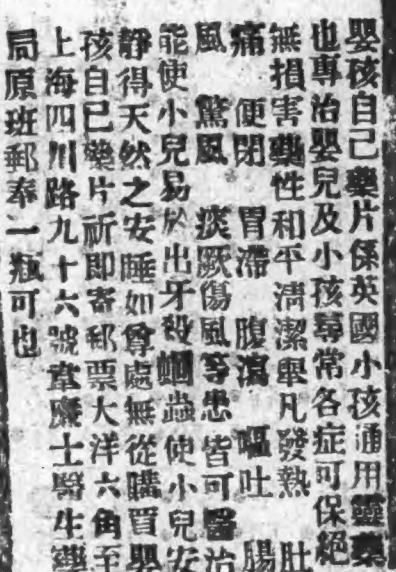 嬰孩自己藥片係英國小孩通用靈藥
也專治嬰兒及小孩尋常各症可保絕
無損害藥性和平清潔舉凡發熱 肚
痛 便閉 胃滯 腹瀉 嘔吐 腸
風 驚風 痰厥傷風等患皆可醫治
能使小兒易於出牙殺蛔蟲使小兒安
靜得天然之安睡如尊處無從購買嬰
孩自已藥片祈即寄郵票大洋六角至
上海四川路九十六號韋廉士醫生藥
局原班郵奉一瓶可也